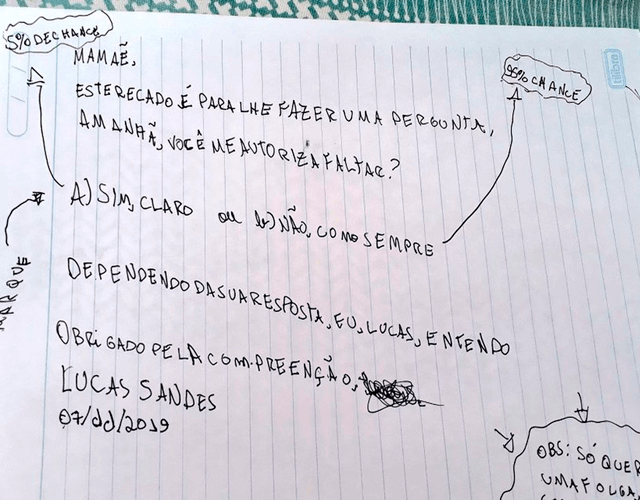 5% DE CHANCE
MAMAẼ,
95% CHANCE
tilibra
ESTE RECADO É PARA LHE FAZER UMA PERGUNTA,
AMANHÃ, VOCÊ ME AUTORIZA FALTAR?
A) SIM, CLARO ou b) NÃO, COMO SEMPRE
MARQUE
DEPENDENDO DA SUA RESPOSTA, EU, LUCAS, ENTENDO
OBRIGADO PELA COMPREENÇÃO,
LUCAS SANDES
07/11/2019
OBS: SÓ QUER
UMA FOLGA